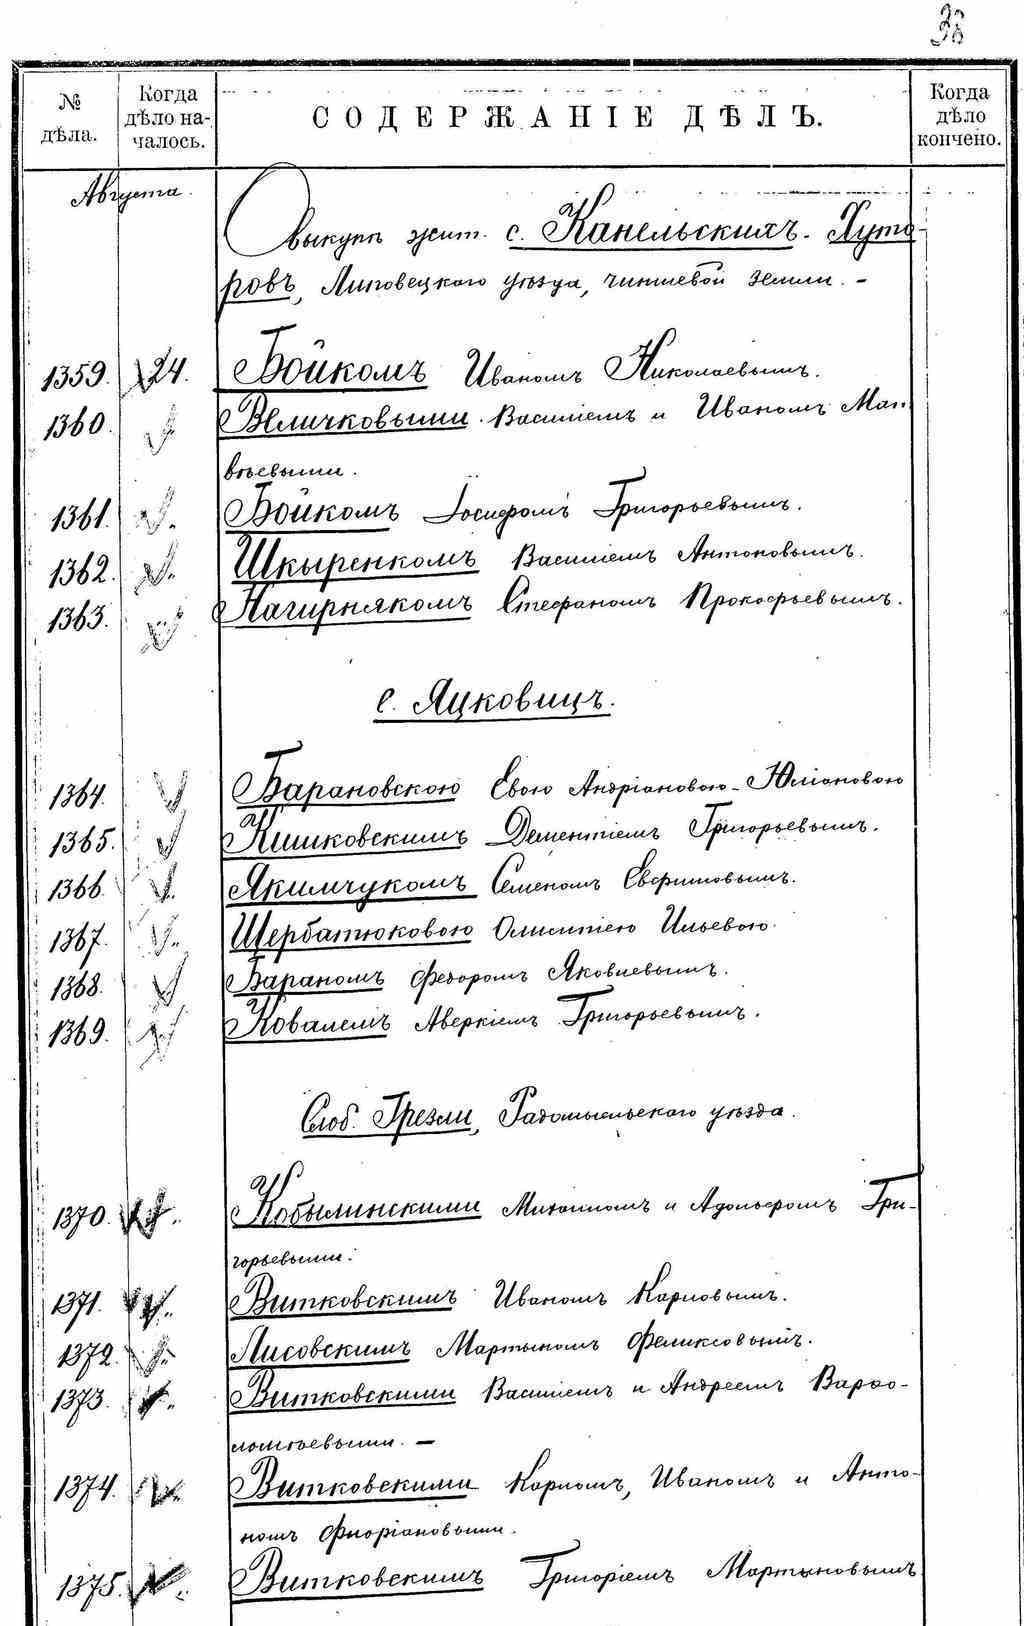 38
№ дѣла.
Когда дѣло началось.
СОДЕРЖАНІЕ ДѢЛЪ.
Когда дѣло кончено.
Августа.
О выкупѣ жит. с. Канельскихъ-Хуто-
ровъ, Липовецкаго уѣзда, чиншевой земли. –
1359. 24. Бойкомъ Иваномъ Николаевымъ.
1360. Величковыми Василіемъ и Иваномъ Мат-
вѣевыми.
1361. Бойкомъ Іосифомъ Григорьевымъ.
1362. Шкыренкомъ Василіемъ Антоновымъ.
1363. Нагирнякомъ Стефаномъ Прокофьевымъ.
с. Яцковицъ.
1364. Барановскою Евою Андріановою-Юліановою
1365. Кишковскимъ Дементіемъ Григорьевымъ.
1366. Якимчукомъ Семеномъ Евфимовымъ.
1367. Щербатюковою Олимпіею Ильевою.
1368. Бараномъ Федоромъ Яковлевымъ.
1369. Ковалемъ Аверкіемъ Григорьевымъ.
Слоб. Грезли, Радомысльскаго уѣзда.
1370. Кобылинскими Михаиломъ и Адольфомъ Гри-
горьевыми.
1371. Витковскимъ Иваномъ Карповымъ.
1372. Лисовскимъ Мартыномъ Феликсовымъ.
1373. Витковскими Василіемъ и Андреемъ Варфо-
ломѣевыми. –
1374. Витковскими Карпомъ, Иваномъ и Анто-
номъ Флоріановыми.
1375. Витковскимъ Григоріемъ Мартыновымъ